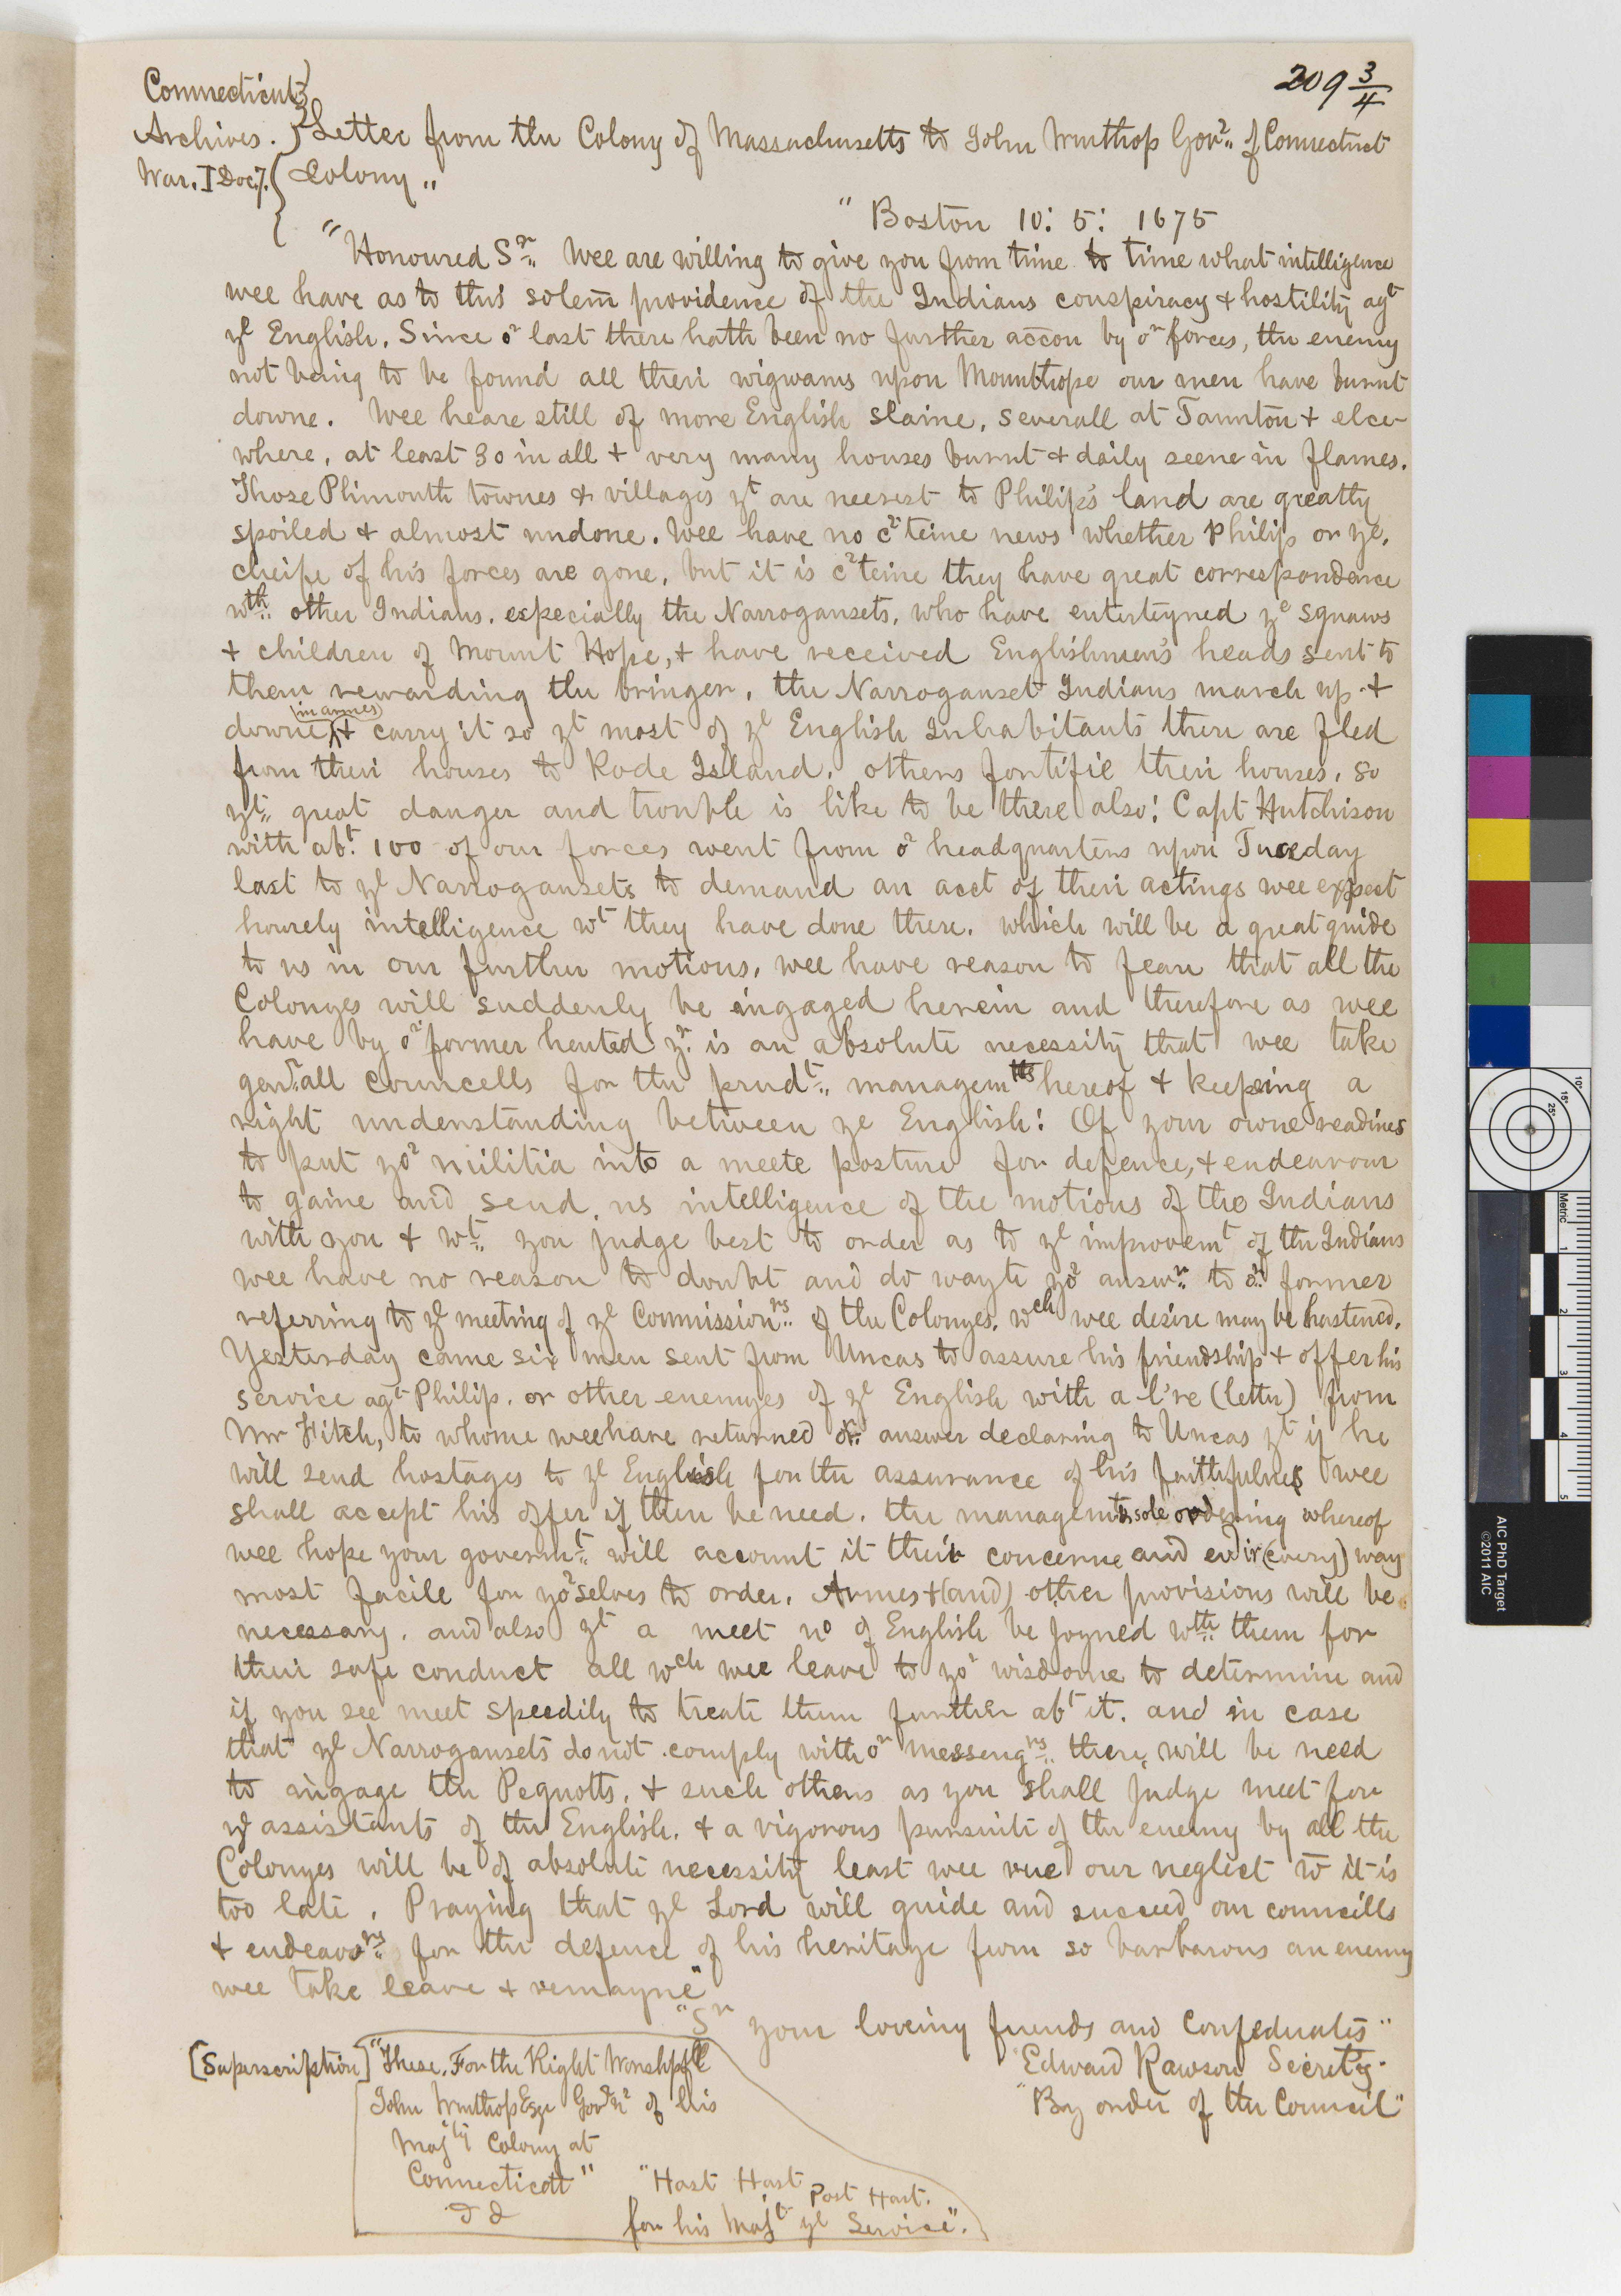 209 3/4
Connecticut
Archives. } Letter from the Colony of Massachusetts to John Winthrop Govr. of Connecticut
War. I Doc.7. { Colony"
"Boston 10: 5: 1675
"Honoured Sr. Wee are willing to give you from time to time what intelligence
wee have as to this solem̄ providence of the Indians conspiracy & hostility agt
ye English. Since or last there hath been no further accōn by or forces, the enemy
not being to be found all their wigwams upon Mounthope our men have burnt
downe. Wee heare still of more English slaine, severall at Taunton & elce-
where, at least 30 in all & very many houses burnt & daily seene in flames.
Those Plimouth townes & villages yt are neerest to Philip's land are greatly
spoiled & almost undone. Wee have no crteine news whether Philip or ye
cheife of his forces are gone, but it is crteine they have great correspondence
wth. other Indians. especially the Narrogansets, who have enterteyned ye squaws
& children of Mount Hope, & have received Englishmen's heads sent to
them rewarding the bringer. the Narroganset Indians march up &
downe (in armes) & carry it so yt most of ye English Inhabitants there are fled
from their houses to Rode Island. others fortifie their houses. so
yt" great danger and trouble is like to be there also: Capt Hutchison
with abt. 100 of our forces went from or headquarters upon Tuseday
last to ye Narrogansets to demand an acct of their actings wee expect
hourely intelligence wt they have done there. which will be a great guide
to us in our further motions. wee have reason to feare that all the
Colonyes will suddenly be ingaged herein and therefore as wee
have by or former hented yr. is an absolute necessity that wee take
genr.all councells for the prudt.. managemts hereof & keepeing a
right understanding between ye English: Of your owne readines
to put yor militia into a meete posture for defence, & endeavour
to gaine and send us intelligence of the motions of the Indians
with you & wt.. you judge best to order as to ye improvemt of the Indians
wee have no reason to doubt and do wayte yor answr.. to or. former
referring to ye meeting of ye Commissionrs.. of the Colonyes. wch wee desire may be hastened.
Yesterday came six men sent from Uncas to assure his friendship & offer his
service agt Philip. or other enemyes of ye English with a l're (letter) from
Mr Fitch, to whome wee have returned or. answer declaring to Uncas yt if he
will send hostages to ye English for the assurance of his faithfulnes wee
shall accept his offer if there be need. the managemt & sole ordering whereof
wee hope your governmt.. will account it their concerne and evir (every) way
most facile for yorselves to order. Armes & (and) other provisions will be
necessary. and also yt a meet no of English be joyned wth.. them for
their safe conduct all wch wee leave to yor wisdome to determine and
if you see meet speedily to treate them further abt it. and in case
that ye Narrogansets do not comply with or messengrs.. there will be need
to ingage the Pequotts. & such others as you shall judge meet for
ye assistants of the English. & a vigorous pursuite of the enemy by all the
Colonyes will be of absolute necessity least wee rue our neglect wn it is
too late. Praying that ye Lord will guide and succeed our councills
& endeavorrs.. for the defence of his heritage from so barbarous an enemy
wee take leave & remayne"
"Sr your loveing friends and Confederates"
Edward Rawson Secrety.
"By order of the Council"
[Superscription] "These. For the Right Worshpfll
John Winthrop Esqr Govern'r of his
Majtys Colony at
Connecticott"
"Hast Hast Post Hast.
for his Majt ye Service".